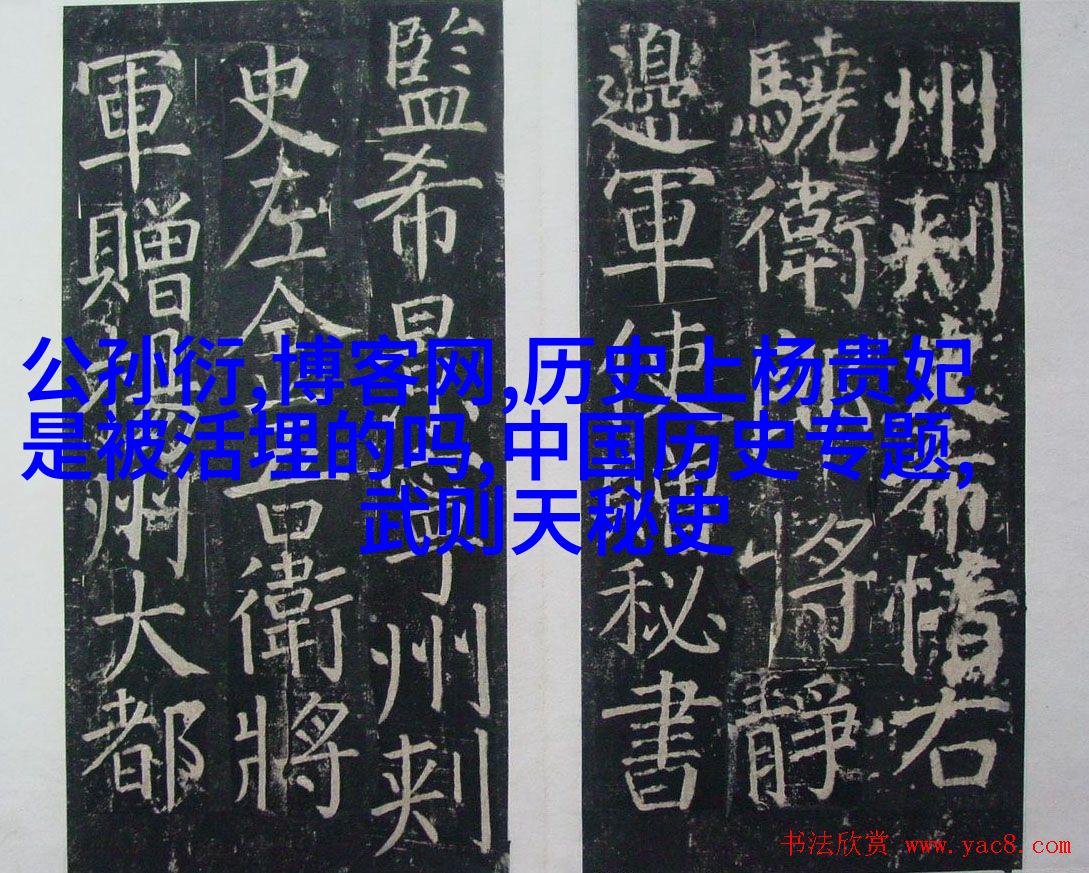 州刺史希右
驍衛將靜
邊軍使秘書
監希寧州刺
史左金吾衛將
軍贈州大都
公孙衍,博客网,历史上杨贵妃
是被活埋的吗,中国历史专题,
武则天秘史
书法欣赏 www.yac8.com